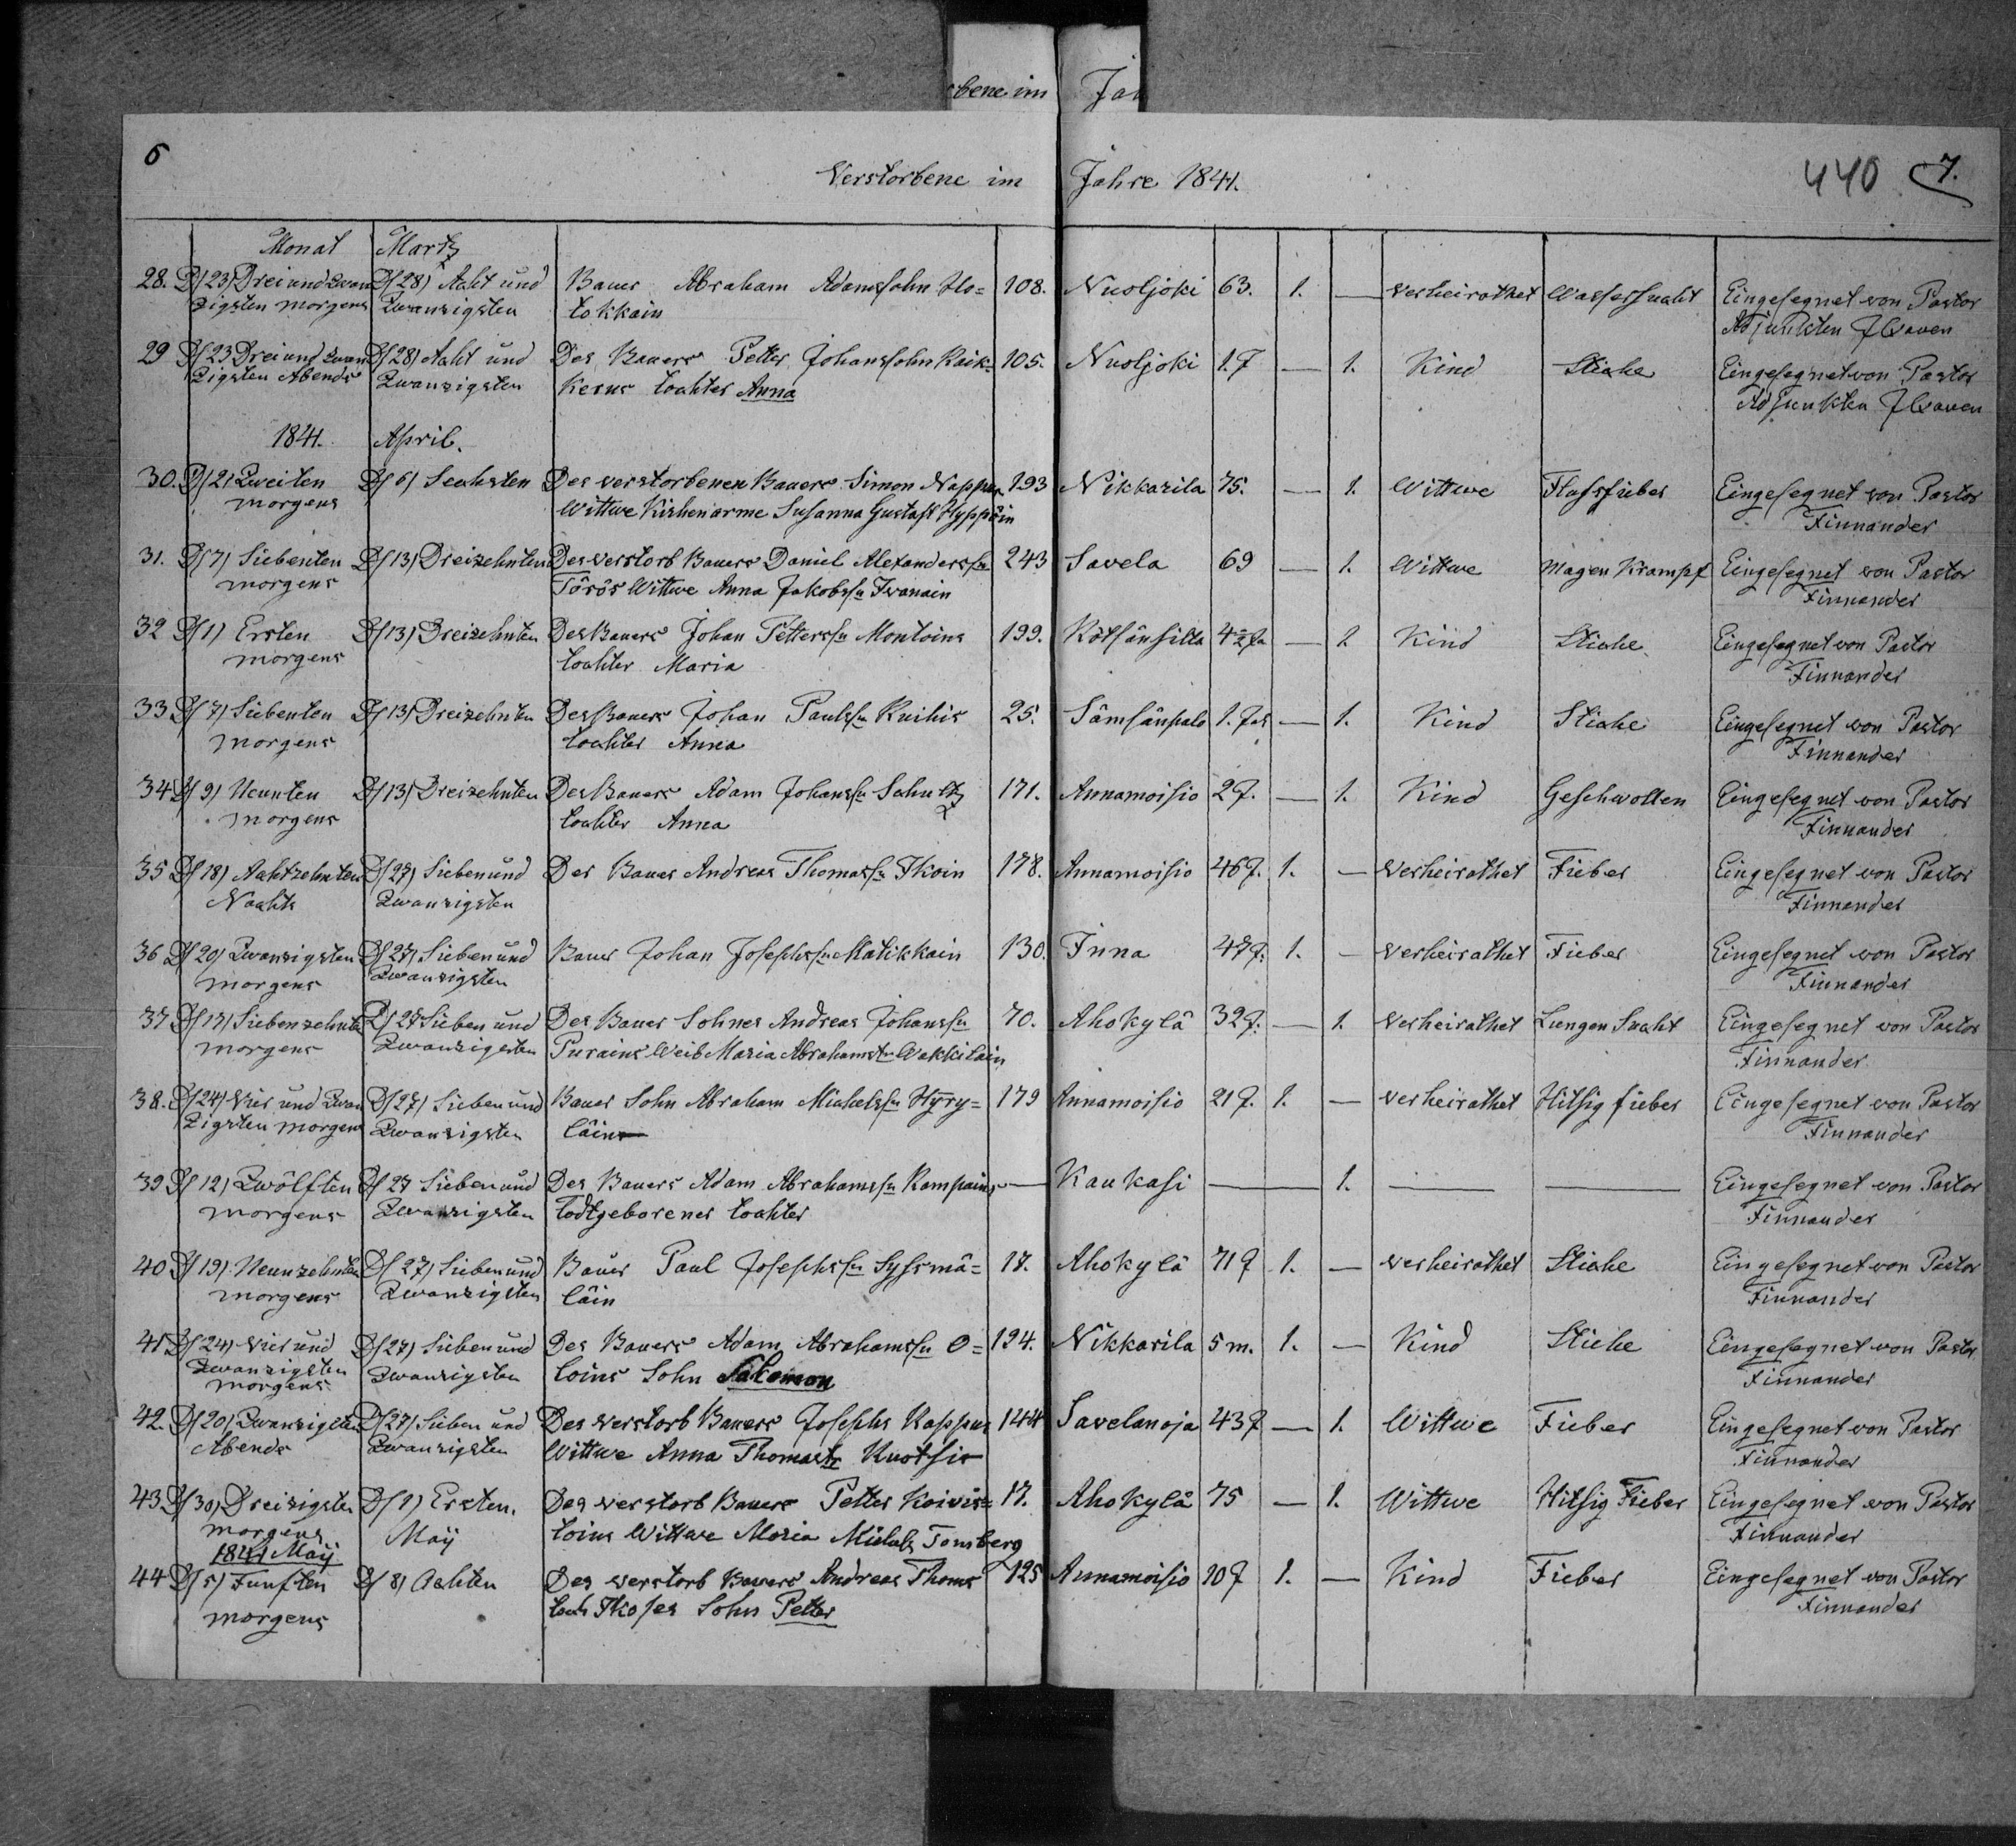 bene im Ja
6
Verstorbene im Jahre 1841.
440 7.
Monat Martz
28. D/23) Drei und zwan D/28) Acht und Bauer Abraham Adamssohn Ho= 108. Nuoljoki 63. 1. — verheirathet Wassersucht Eingesegnet von Pastor
zigsten morgens Zwanzigsten tokkain Adjunkten
29 D/23 Drei und zwan D/28) Acht und Des Bauers Petter Johanssohn Kaik= 105. Nuoljoki 1.J — 1. Kind Stiche Eingesegnet von Pastor
zigsten Abends Zwanzigsten kerns tochter Anna Adjunkten
1841. April.
30. D/2) Zweiten D/6) Sechsten Des verstorbenen Bauers Simon 193 Nikkarila 75. — 1. Wittwe Flussfieber Eingesegnet von Pastor
morgens Wittwe Kirhenarme Susanna Gustafs Hyppöin Finnander
31. D/7) Siebenten D/13) Dreizehnten Des verstorb Bauers Daniel Alexanderssn 243 Savela 69 — 1. Wittwe Magen Krampf Eingesegnet von Pastor
morgens Törös Wittwe Anna Jakobssn Iwanain Finnander
32 D/1) Ersten D/13) Dreizehnten Des Bauers Johan Petterssn Montoins 199. 4½ Ja — 1 Kind Stiche Eingesegnet von Pastor
morgens tochter Maria Finnander
33 D/7) Siebenten D/13) Dreizehnten Des Bauers Johan Paulssn Kuihis 25. Sämsänpalo 1. Jah — 1. Kind Stiche Eingesegnet von Pastor
morgens tochter Anna Finnander
34 D/9) Neunten D/13) Dreizehnten Des Bauers Adam Johanssn 171. Annamoisio 2J. — 1. Kind Geschwollen Eingesegnet von Pastor
morgens tochter Anna Finnander
35 D/18) Achtzehnten D/27) Sieben und Der Bauer Andreas Thomassn Ikoin 178. Annamoisio 46J. 1. — verheirathet Fieber Eingesegnet von Pastor
Nachts Zwanzigsten Finnander
36 D/20) Zwanzigsten D/27) Sieben und Bauer Johan Josephssn Matikkain 130. Inna 47J. 1. — verheirathet Fieber Eingesegnet von Pastor
morgens Zwanzigsten Finnander
37 D/17) Siebenzehnten D/27 Sieben und Des Bauer Sohnes Andreas Johanssn 70. Ahokylä 32J. — 1. verheirathet Lungen Sucht Eingesegnet von Pastor
morgens Zwanzigsten Purains Weib Maria Abrahamstr Wakkilain Finnander
38. D/24) Vier und Zwan D/27) Sieben und Bauer Sohn Abraham Michelssn Hyry= 179 Annamoisio 21J. 1. — verheirathet Hitsig fieber Eingesegnet von Pastor
zigsten morgens Zwanzigsten läin Finnander
39 D/12) Zwölften D/27 Sieben und Des Bauers Adam Abrahamssn Kampains — Kaukasi — 1. — — Eingesegnet von Pastor
morgens Zwanzigsten todtgeborener tochter Finnander
40 D/19) Neunzehnten D/27) Sieben und Bauer Paul Josephssn Syssmä= 17. Ahokylä 71J 1. — verheirathet Stiche Eingesegnet von Pastor
morgens Zwanzigsten läin Finnander
41 D/24) vier und D/27) Sieben und Des Bauers Adam Abrahamssn O= 194. Nikkarila 5 m. 1. — Kind Stiche Eingesegnet von Pastor
Zwanzigsten Zwanzigsten loins Sohn Salomon Finnander
morgens
42. D/20) Zwanzigsten D/27) Sieben und Des verstorb Bauers Josephs Kappus 144 Savelanoja 43J — 1. Wittwe Fieber Eingesegnet von Pastor
Abends Zwanzigsten Wittwe Anna Thomastr Finnander
43. D/30) Dreizigsten D/1) Ersten. Des verstorb Bauers Petter Koivis= 17. Ahokylä 75 — 1. Wittwe Hitsig Fieber Eingesegnet von Pastor
morgens Maÿ toins Wittwe Maria Michels Tomberg Finnander
1841 Maÿ
44 D/5) Funften D/8) Achten Des verstorb Bauers Andreas Thoms 125 Annamoisio 10J 1. — Kind Fieber Eingesegnet von Pastor
morgens Sohn Petter Finnander